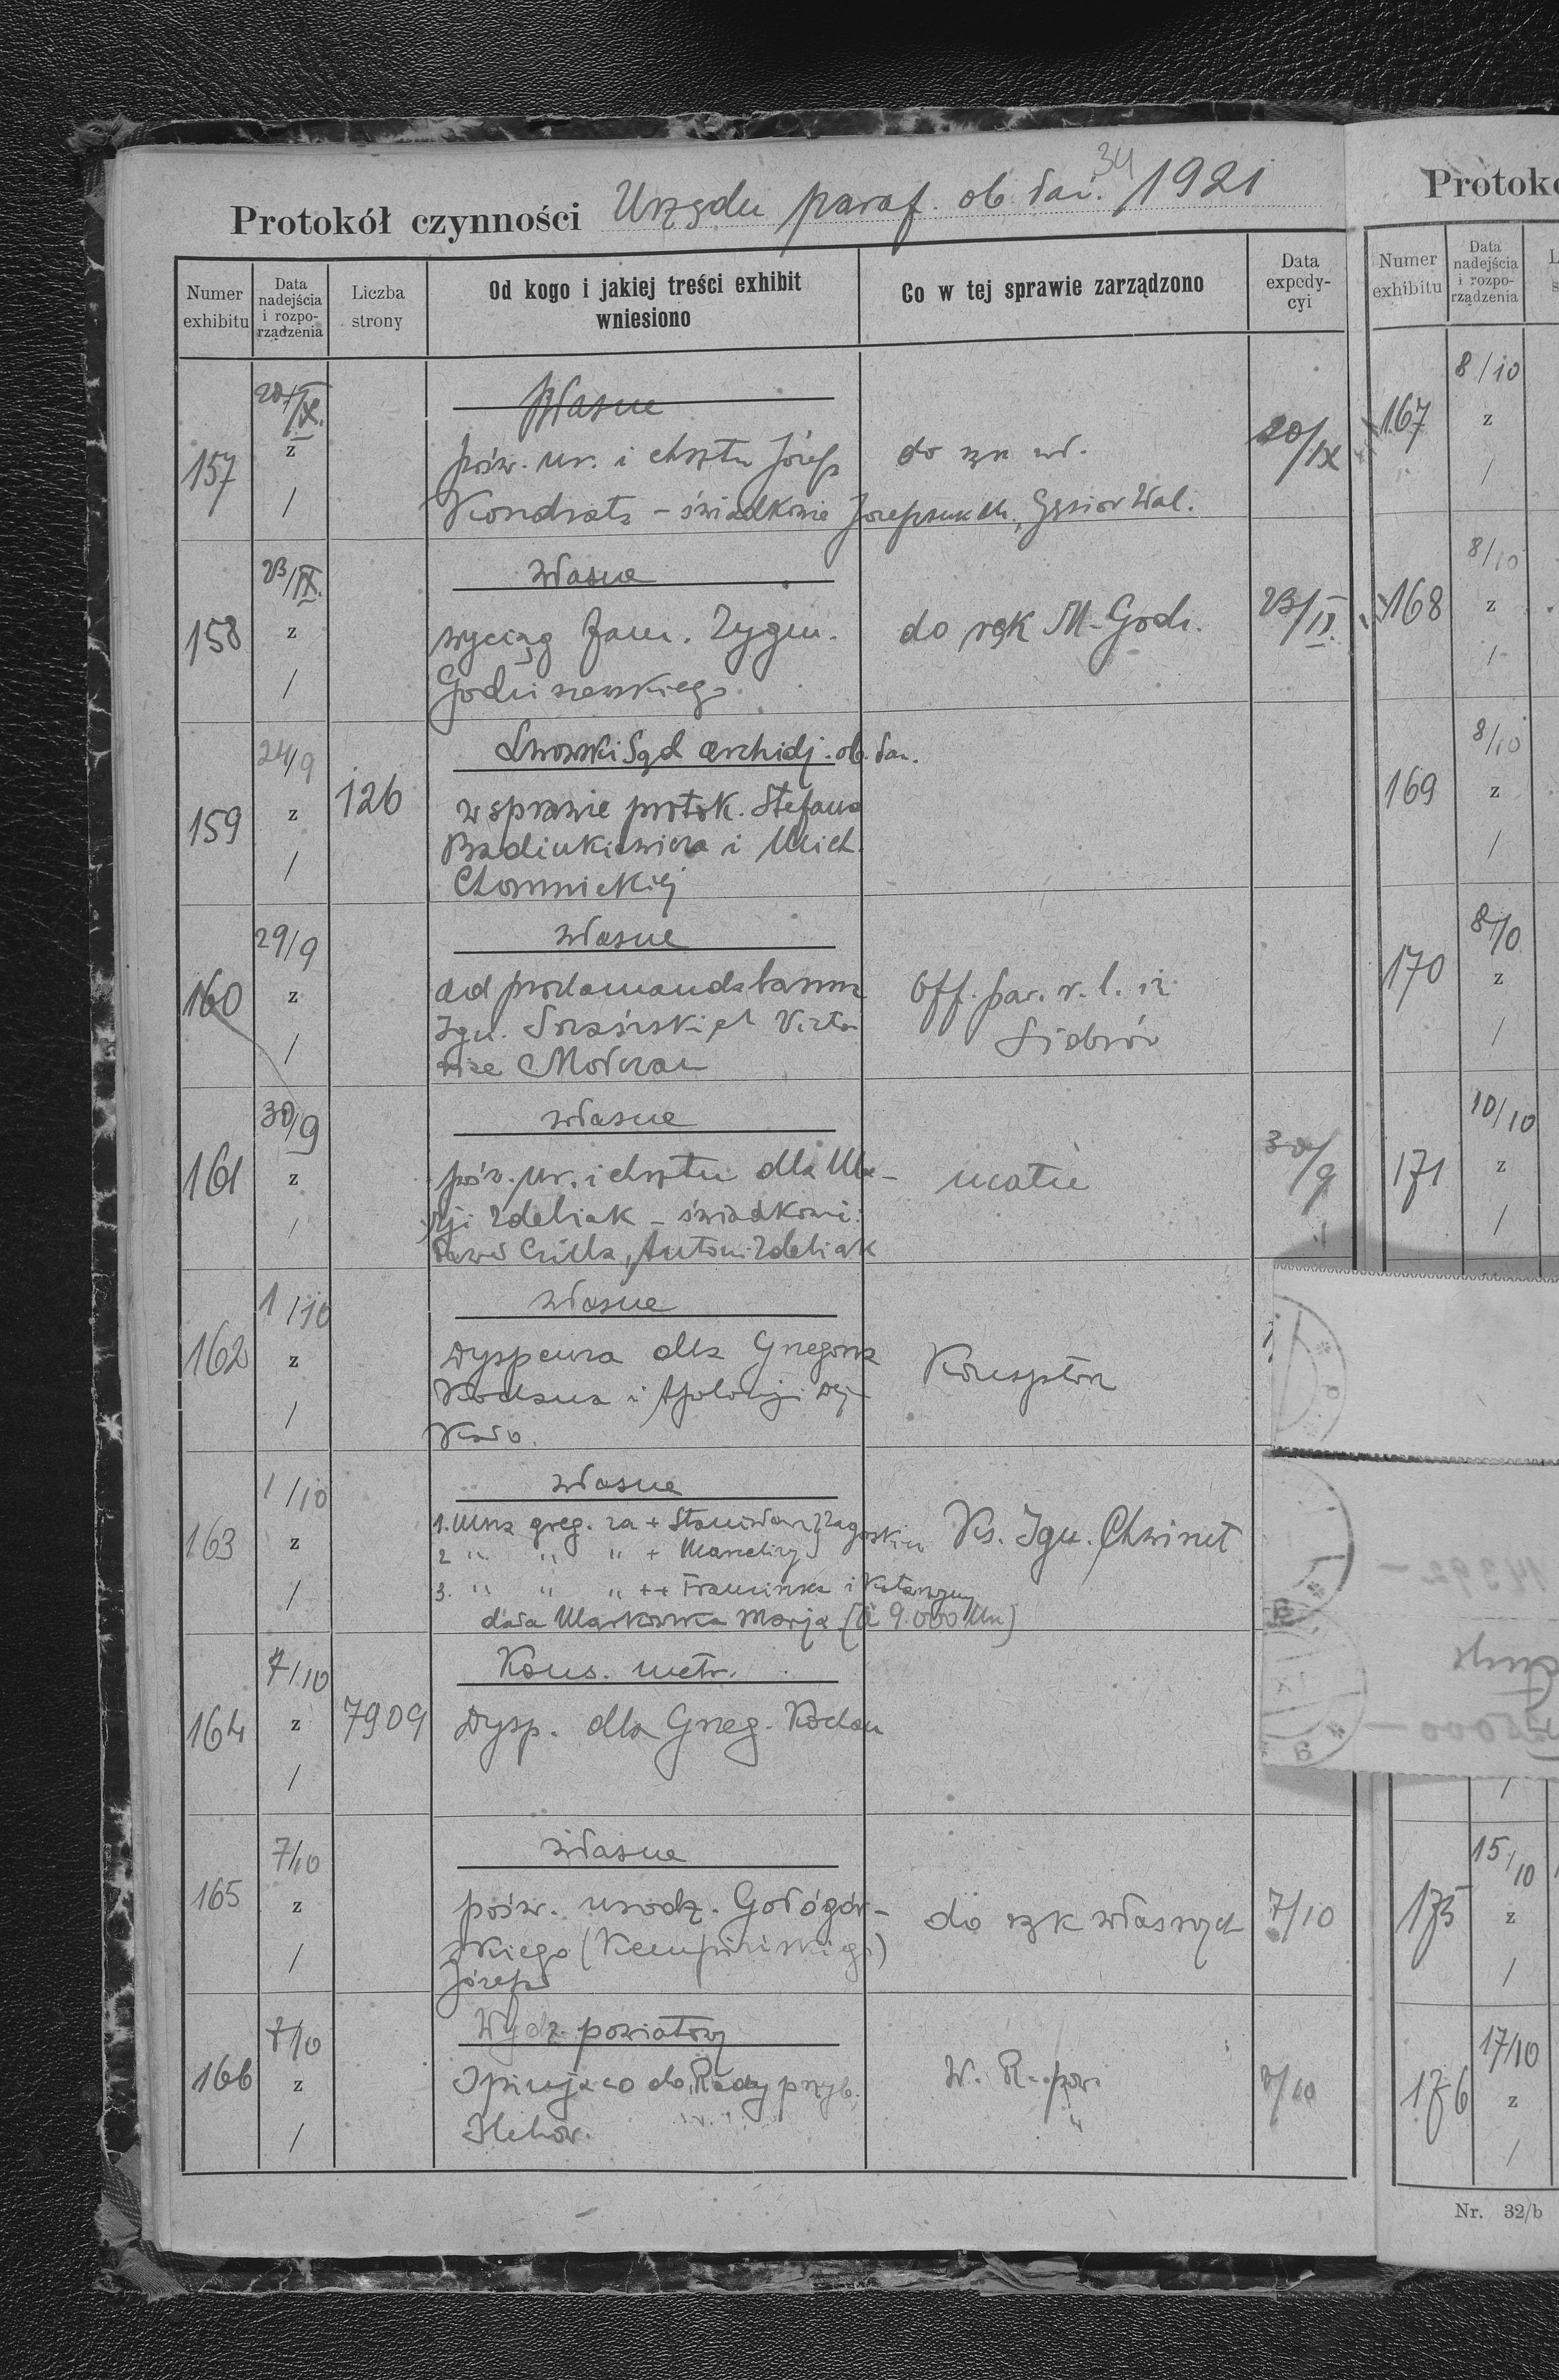 34
Protokół czynności Urzędu paraf. ob. łac. 1921
Numer exhibitu
Data nadejścia i rozporządzenia
Liczba strony
Od kogo i jakiej treści exhibit wniesiono
Co w tej sprawie zarządzono
Data expedycyi
157
20/IX.
z
/
Własne
pośw. ur. i chrztu Józefa
Kondrata – świadkowie Gąsior Wal.
do rąk wł.
20/IX
158
23/IX.
z
/
własne
wyciąg Zygm.
do ręk M. Godz.
23/IX.
159
24/9
z
/
126
Lwowski Sąd archidj. ob. łac.
w sprawie protok. Stefana
i Mich.
Chomnickiej
160
29/9
z
/
własne
ad proclamanda banna
Ign. et Victo-
riae
Off. par. r. l. in
161
30/9
z
/
własne
pośw. ur. i chrztu dla Ma-
rji Zdebiak – świadkowie:
Antoni Zdebiak
matce
30/9
162
1/10
z
/
własne
Dyspensa dla Grzegorza
Kodana i Apolonji
Konsystorz
163
1/10
z
/
własne
1. Msza greg. za + Stanisława Zagórskich
2 " " " +
3. " " " ++ Franciszka i Katarzyny
dała Markowska Marja (à 9.000 Mk)
Ks. Ign. Chwirut
164
7/10
z
/
7909
Kons. metr.
Dysp. dla Grzeg. Kodan
165
7/10
z
/
własne
pośw. urodz. Gołogór-
skiego (Kempińskiego)
Józefa
do rąk własnych
7/10
166
7/10
z
/
Wydz. powiatowy
do Rady przyb.
W. R. pow.
7/10
Protoko
Numer exhibitu
Data nadejścia i rozporządzenia
167
8/10
z
/
168
8/10
z
/
169
8/10
z
/
170
8/10
z
/
171
10/10
z
/
/
175
15/10
z
/
176
17/10
z
/
Nr. 32/b